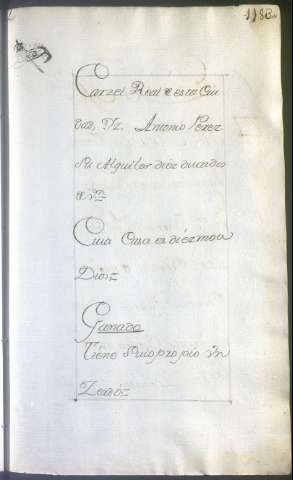 1183
Carzel Real de esta Ciu
dad, Dn. Antonio Perez
Su Alquiler diez ducados
de Vn.
Cuia Casa es diezmo a
Dios
Ganado
Tiene Suio propio Vn
Zerdo